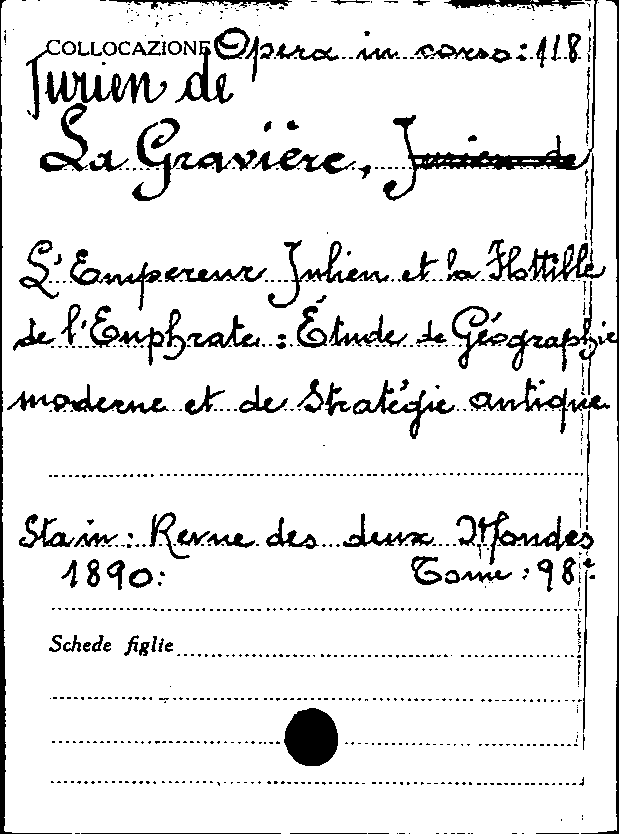 COLLOCAZIONE Opera in corso: 118
Jurien de
La Gravière, Jurien de
L'Empereur Julien et la Flottille
de l'Euphrate : Étude de Géographie
moderne et de Stratégie antique
Sta in : Revue des deux Mondes
1890: Tome : 98e.
Schede figlie